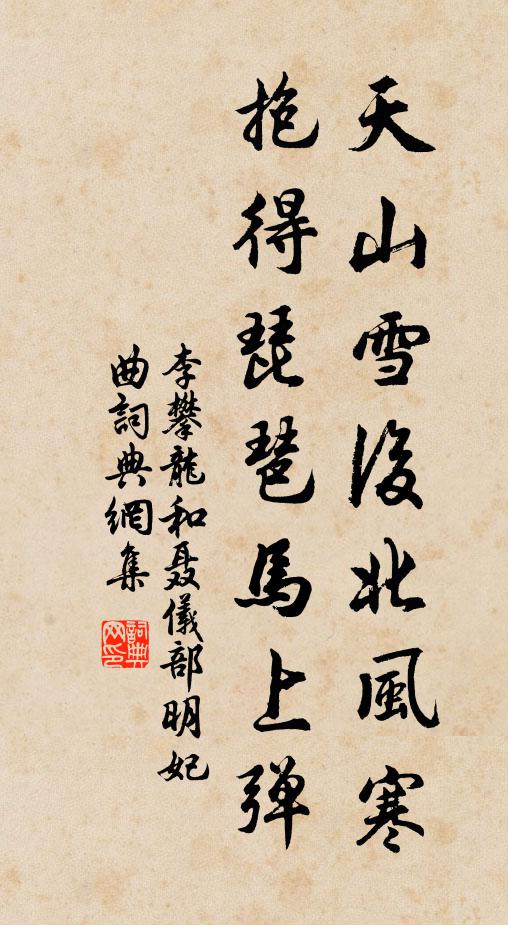 天山雪後北風寒
抱得琵琶馬上彈
李攀龍和聶儀部明妃
曲詞典網集
詞典
网印